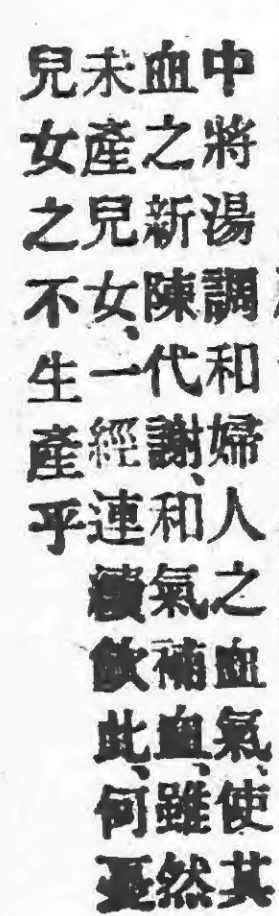 中將湯調和婦人之血氣、使其
血之新陳代謝、和氣補血、雖然
未產兒女、一經連續飲此、何憂
兒女之不生產乎